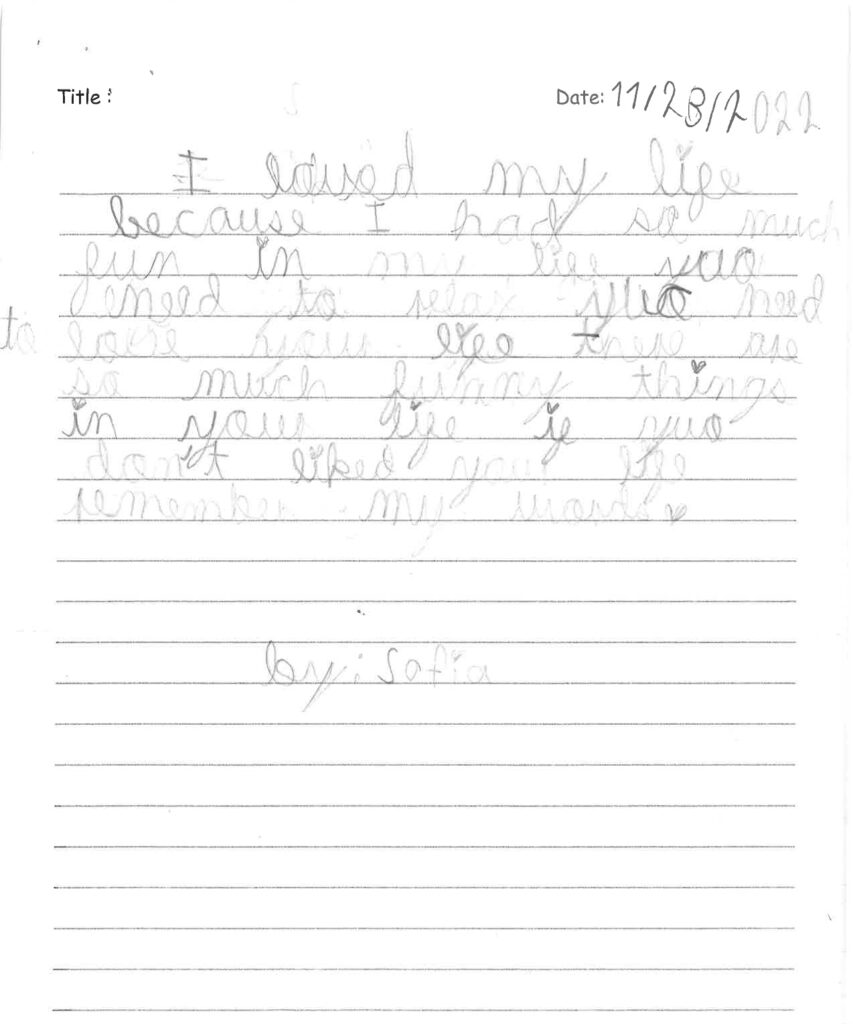 Title :
Date: 11/28/2022
I loved my life
because I had so much
fun in my life yuo
need to relax yuo need
to love your life there are
so much funny things
in your life if yuo
don't liked your life
remember my words
by: Sofia